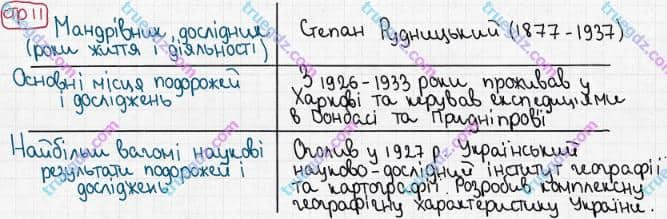 стр 11
Мандрівник, дослідник
(роки життя і діяльності)
Степан Рудницький (1877-1937)
Основні місця подорожей
і досліджень
З 1926-1933 роки проживав у
Харкові та керував експедиціями
в Донбасі та Придніпрові
Найбільш вагомі наукові
результати подорожей і
досліджень
Очолив у 1927 р. Український
науково-дослідний інститут географії
та картографії. Розробив комплексну
географічну характеристику України.
truegdz.com